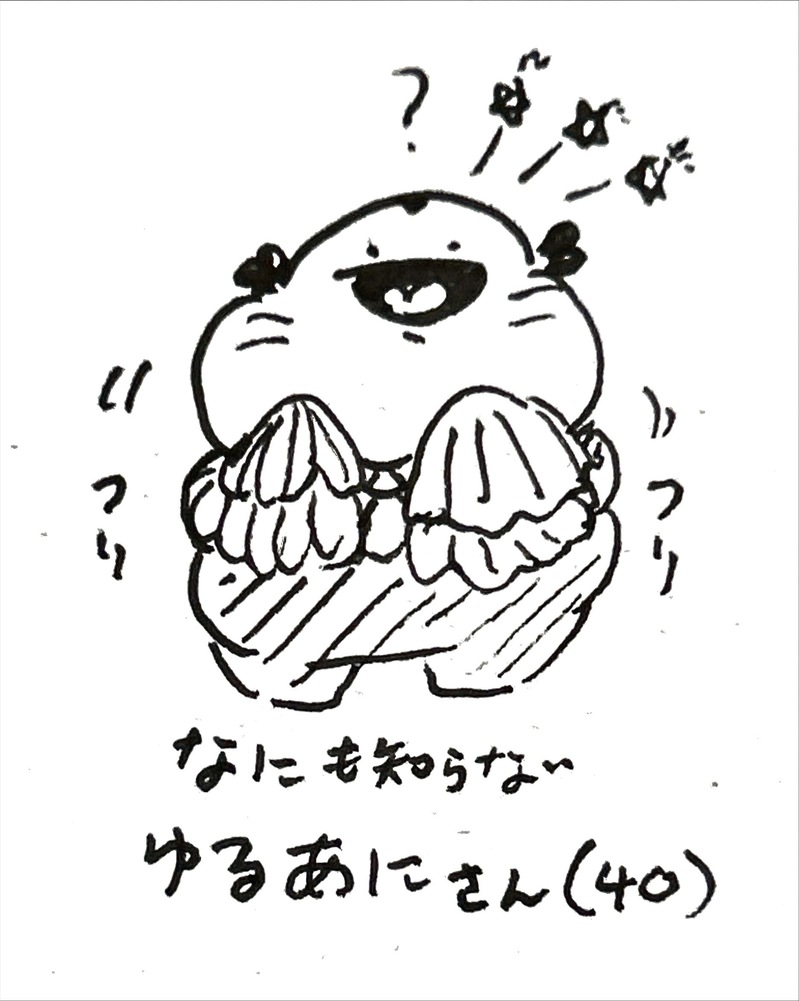 ?
フリ
フリ
なにも知らない
ゆるあにさん(40)